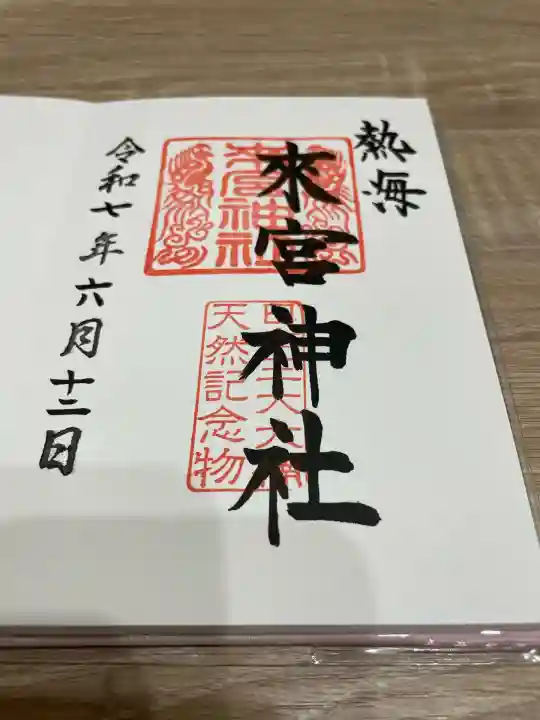 熱海
來宮神社
来宮神社
天然記念物
令和七年六月十二日